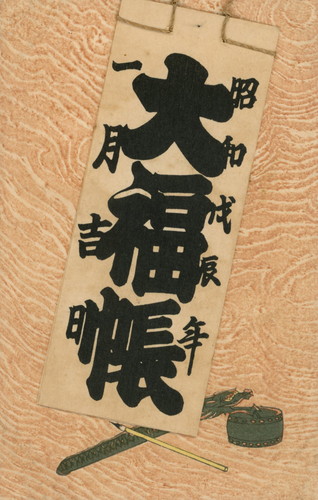 昭和戊辰年
大福帳
一月吉明